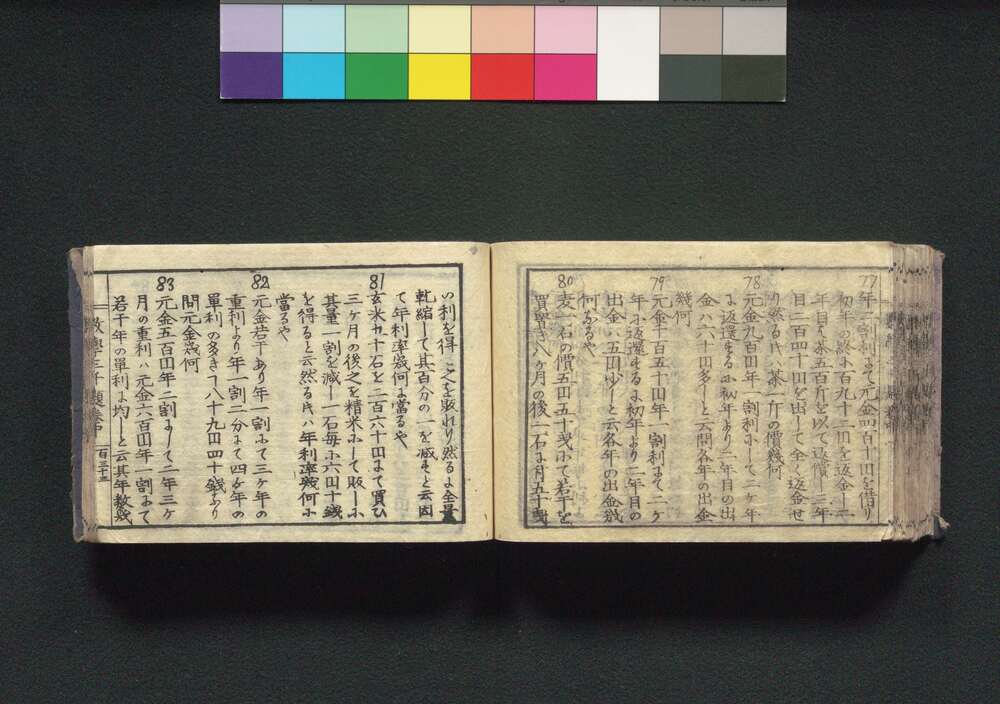 77
年一割利にて元金四百十四を借り
初年の終に百九十二円を返金し二
年目に茶五百斤を以て返償し三年
目二百四十円を出して全く返金せ
り然る氏ハ茶一斤の價幾何
78
元金九百円年一割利にして二ヶ年
に返還するに初年より二年目の出
金ハ六十円多しと云問各年の出金
幾何
79
元金千百五十円年一割利にて二ヶ
年に返還するに初年より二年目の
出金ハ五円少しと云各年の出金幾
何なるや
80
麦一石の價五円五十銭にて若干を
買置き八ヶ月の後一石に付五十銭
の利を得 之を販れり然るに全量
乾縮して其百分の一を減すと云因
て年利率幾何に當るや
81
玄米九十石を二百六十円にて買ひ
三ヶ月の後之を精米にして販しに
其量一割を減し一石毎に六円十銭
を得ると云然る氏ハ年利率幾何に
當るや
82
元金若干あり年一割にて三ヶ年の
重利より年一割二分にて四ヶ年の
單利の多きヿ八十九円四十銭なり
問元金幾何
83
元金五百円年二割にして二年三ヶ
月の重利ハ元金六百円年一割にて
若干年の單利に均しと云其年数幾
数學三千題卷中
百三十五